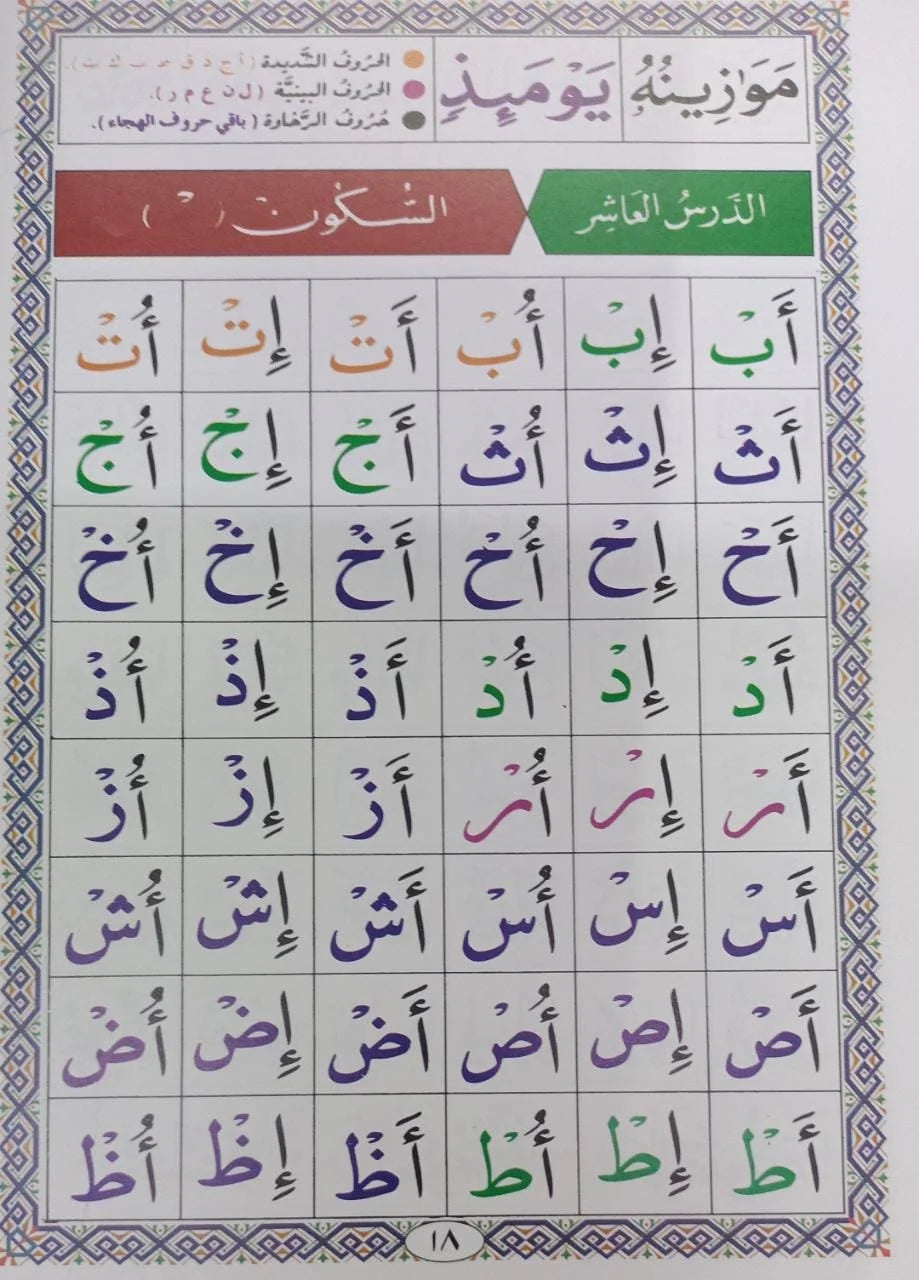 مَوَٰزِينُهُۥ يَوْمَئِذٍ
الحُروُفُ الشَّديِدة (أ ج د ق ط ب ك ت).
الحُروُفُ البينيَّة (ل ن ع م ر).
حُرُوُفُ الرَّخاوة (باقي حروف الهجاء).
الدَرسُ العَاشِر السُّكُون ( ْ )
أَبْ إِبْ أُبْ أَتْ إِتْ أُتْ
أَثْ إِثْ أُثْ أَجْ إِجْ أُجْ
أَحْ إِحْ أُحْ أَخْ إِخْ أُخْ
أَدْ إِدْ أُدْ أَذْ إِذْ أُذْ
أَرْ إِرْ أُرْ أَزْ إِزْ أُزْ
أَسْ إِسْ أُسْ أَشْ إِشْ أُشْ
أَصْ إِصْ أُصْ أَضْ إِضْ أُضْ
أَطْ إِطْ أُطْ أَظْ إِظْ أُظْ
١٨